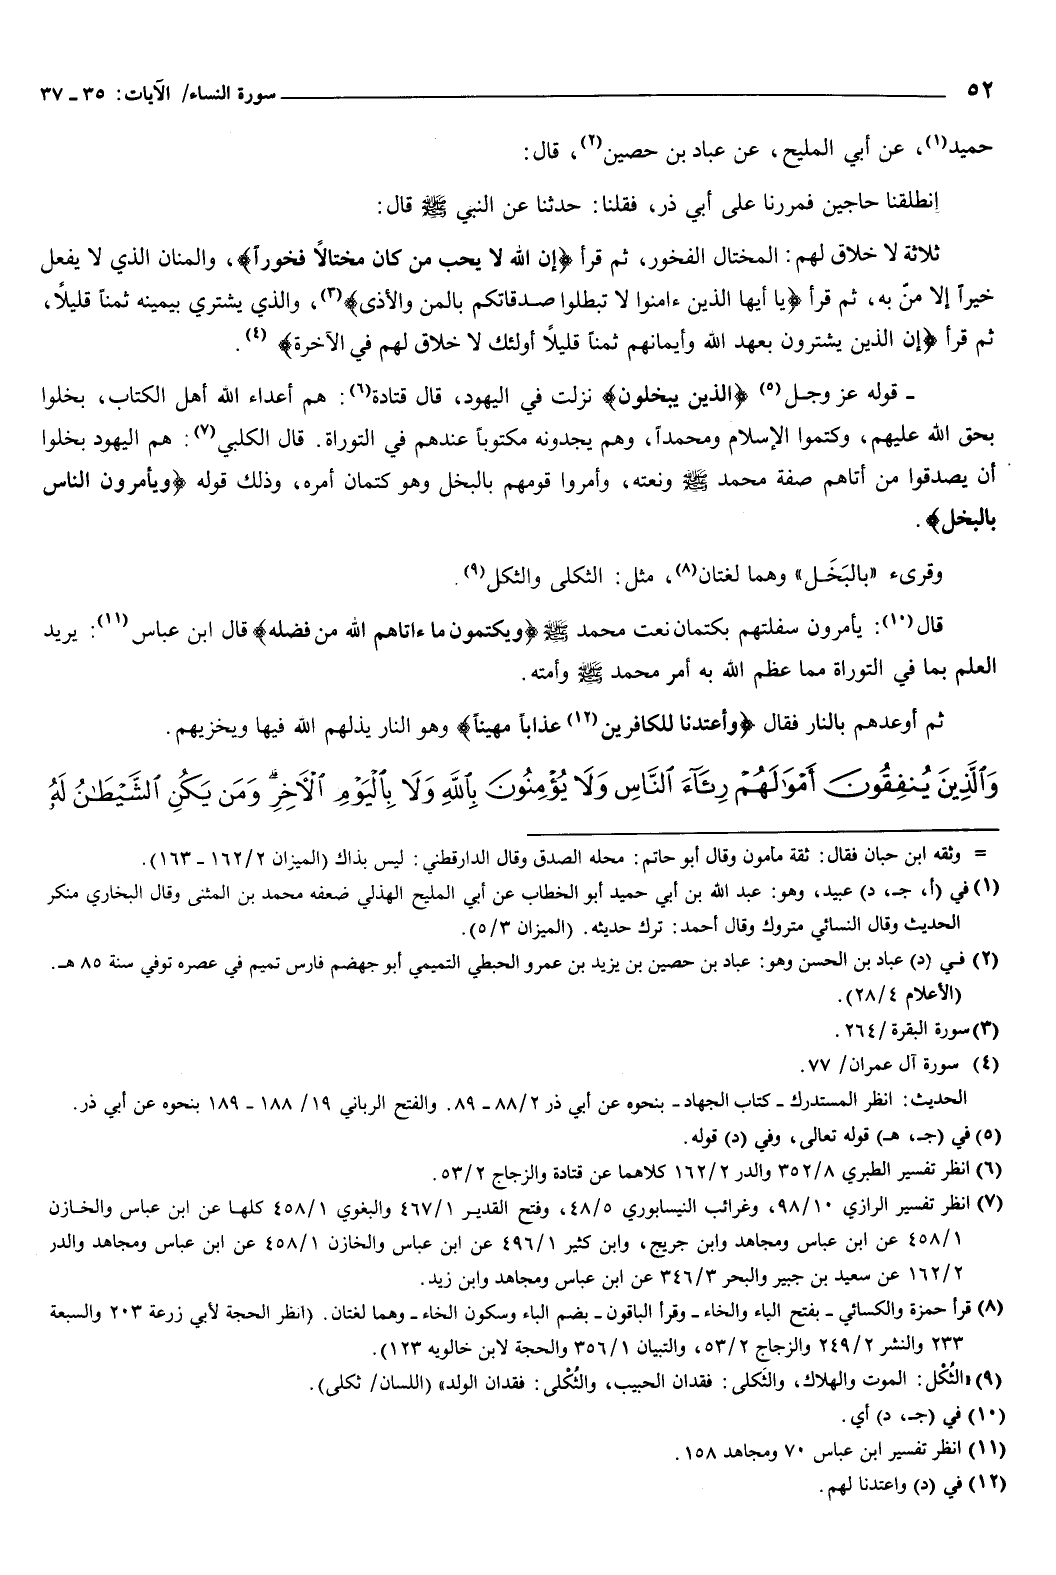 ٥٢ سورة النساء/ الآيات: ٣٥ ـ ٣٧
حميد(١)، عن أبي المليح، عن عباد بن حصين(٢)، قال:
إنطلقنا حاجين فمررنا على أبي ذر، فقلنا: حدثنا عن النبي ﷺ قال:
ثلاثة لا خلاق لهم: المختال الفخور، ثم قرأ ﴿إن الله لا يحب من كان مختالاً فخوراً﴾، والمنان الذي لا يفعل
خيراً إلا منّ به، ثم قرأ ﴿يا أيها الذين ءامنوا لا تبطلوا صدقاتكم بالمن والأذى﴾(٣)، والذي يشتري بيمينه ثمناً قليلاً،
ثم قرأ ﴿إن الذين يشترون بعهد الله وأيمانهم ثمناً قليلاً أولئك لا خلاق لهم في الآخرة﴾ (٤).
ـ قوله عز وجل(٥) ﴿الذين يبخلون﴾ نزلت في اليهود، قال قتادة(٦): هم أعداء الله أهل الكتاب، بخلوا
بحق الله عليهم، وكتموا الإسلام ومحمداً، وهم يجدونه مكتوباً عندهم في التوراة. قال الكلبي(٧): هم اليهود بخلوا
أن يصدقوا من أتاهم صفة محمد ﷺ ونعته، وأمروا قومهم بالبخل وهو كتمان أمره، وذلك قوله ﴿ويأمرون الناس
بالبخل﴾.
وقرىء «بالبَخَل» وهما لغتان(٨)، مثل: الثكلى والثكل(٩).
قال(١٠): يأمرون سفلتهم بكتمان نعت محمد ﷺ ﴿ويكتمون ما ءاتاهم الله من فضله﴾ قال ابن عباس(١١): يريد
العلم بما في التوراة مما عظم الله به أمر محمد ﷺ وأمته.
ثم أوعدهم بالنار فقال ﴿وأعتدنا للكافرين(١٢) عذاباً مهيناً﴾ وهو النار يذلهم الله فيها ويخزيهم.
وَٱلَّذِينَ يُنفِقُونَ أَمْوَٰلَهُمْ رِئَآءَ ٱلنَّاسِ وَلَا يُؤْمِنُونَ بِٱللَّهِ وَلَا بِٱلْيَوْمِ ٱلْأَخِرِ ۗ وَمَن يَكُنِ ٱلشَّيْطَٰنُ لَهُۥ
= وثقه ابن حبان فقال: ثقة مأمون وقال أبو حاتم: محله الصدق وقال الدارقطني: ليس بذاك (الميزان ١٦٢/٢ ـ ١٦٣).
(١) في (أ، جـ، د) عبيد، وهو: عبد الله بن أبي حميد أبو الخطاب عن أبي المليح الهذلي ضعفه محمد بن المثنى وقال البخاري منكر
الحديث وقال النسائي متروك وقال أحمد: ترك حديثه. (الميزان ٥/٣).
(٢) في (د) عباد بن الحسن وهو: عباد بن حصين بن يزيد بن عمرو الحبطي التميمي أبو جهضم فارس تميم في عصره توفي سنة ٨٥ هـ.
(الأعلام ٢٨/٤).
(٣) سورة البقرة /٢٦٤.
(٤) سورة آل عمران/ ٧٧.
الحديث: انظر المستدرك ـ كتاب الجهاد ـ بنحوه عن أبي ذر ٨٨/٢ ـ ٨٩. والفتح الرباني ١٩/ ١٨٨ ـ ١٨٩ بنحوه عن أبي ذر.
(٥) في (جـ، هـ) قوله تعالى، وفي (د) قوله.
(٦) انظر تفسير الطبري ٣٥٢/٨ والدر ١٦٢/٢ كلاهما عن قتادة والزجاج ٥٣/٢.
(٧) انظر تفسير الرازي ٩٨/١٠، وغرائب النيسابوري ٤٨/٥، وفتح القدير ٤٦٧/١ والبغوي ٤٥٨/١ كلها عن ابن عباس والخازن
٤٥٨/١ عن ابن عباس ومجاهد وابن جريج، وابن كثير ٤٩٦/١ عن ابن عباس والخازن ٤٥٨/١ عن ابن عباس ومجاهد والدر
١٦٢/٢ عن سعيد بن جبير والبحر ٣٤٦/٣ عن ابن عباس ومجاهد وابن زيد.
(٨) قرأ حمزة والكسائي ـ بفتح الباء والخاء ـ وقرأ الباقون ـ بضم الباء وسكون الخاء ـ وهما لغتان. (انظر الحجة لأبي زرعة ٢٠٣ والسبعة
٢٣٣ والنشر ٢٤٩/٢ والزجاج ٥٣/٢، والتبيان ٣٥٦/١ والحجة لابن خالويه ١٢٣).
(٩) «الثُكْل: الموت والهلاك، والثَكلى: فقدان الحبيب، والثُكْلى: فقدان الولد» (اللسان/ ثكلى).
(١٠) في (جـ، د) أي.
(١١) انظر تفسير ابن عباس ٧٠ ومجاهد ١٥٨.
(١٢) في (د) واعتدنا لهم.